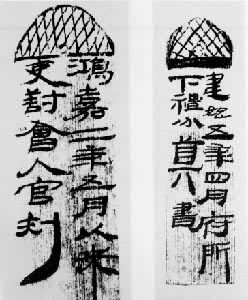 建始五年四月府所
下禮分書
鴻嘉二年五月以來
吏對會入官刺